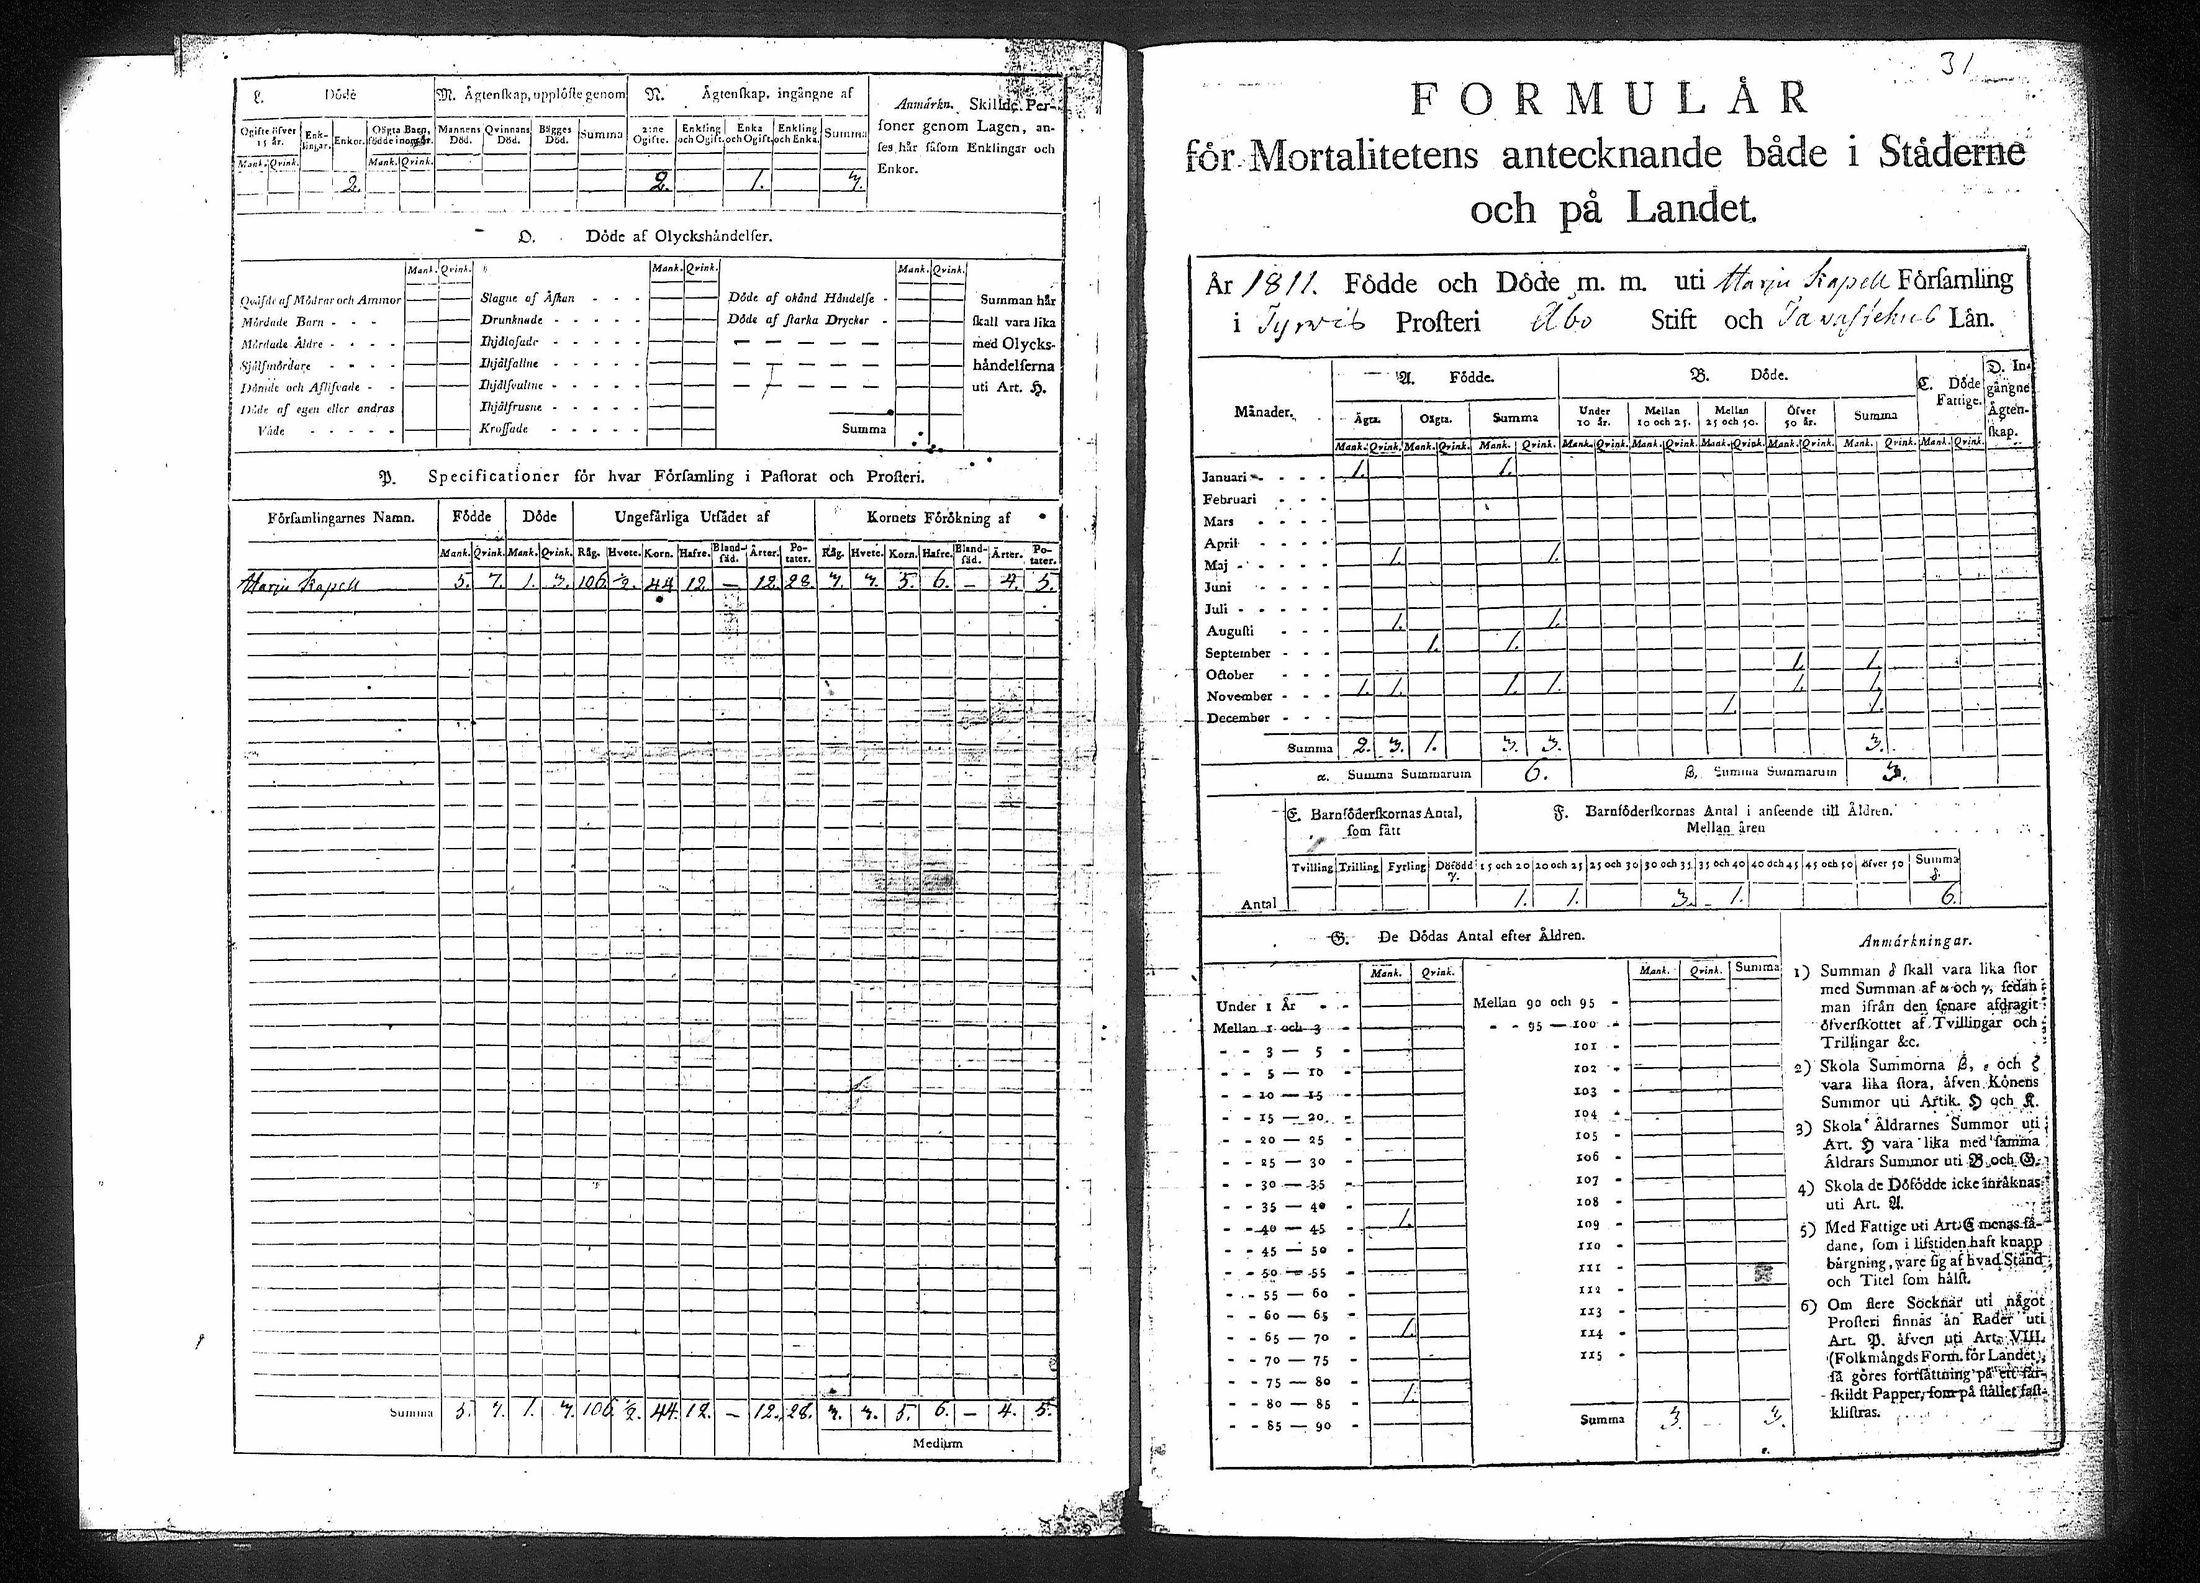 L. Döde
M. Ägtenskap, upplöste genom
N. Ägtenskap, ingångne af
Anmärkn. Skillde Per-
soner genom Lagen, an-
ses här såsom Enklingar och
Enkor.
Ogifte öfver 15 år. Enk-lingar. Enkor. Oägta Barn, födde inom år.
Mannens Död. Qvinnans Död. Bägges Död. Summa
2:ne Ogifte. Enkling och Ogift. Enka och Ogift. Enkling och Enka. Summa
Mank. Qvink. Mank. Qvink.
2. 2. 1. 3.
O. Döde af Olyckshändelser.
Mank. Qvink. Mank. Qvink. Mank. Qvink.
Qväfde af Mödrar och Ammor Slagne af Åskan - - - Döde af okänd Händelse - Summan här
Mördade Barn - - - Drunknade - - - - Döde af starka Drycker - skall vara lika
Mördade Äldre - - - - Ihjälosade - - - - med Olycks-
Självmördare - - - - Ihjälfallne - - - - händelserna
Dömde och Aflifvade - - Ihjälsvultne - - - - uti Art. H.
Döde af egen eller andras Ihjälfrusne - - - - -
Våde - - - - - Krossade - - - - - Summa
P. Specificationer för hvar Församling i Pastorat och Prosteri.
Församlingarnes Namn. Födde Döde Ungefärliga Utsädet af Kornets Förökning af
Mank. Qvink. Mank. Qvink. Råg. Hvete. Korn. Hafre. Bland-säd. Ärter. Po-tater. Råg. Hvete. Korn. Hafre. Bland-säd. Ärter. Po-tater.
Harju Kapell 5. 7. 1. 3. 106 ½. 44 12. — 12. 28. 7. 7. 5. 6. — 4. 5.
Summa 5. 7. 1. 3. 106. ½. 44. 12. — 12. 28. 7. 7. 5. 6. — 4. 5.
Medium
31
FORMULÅR
för Mortalitetens antecknande både i Städerne
och på Landet.
År 1811. Födde och Döde m. m. uti Harju Kapell Församling
i Tyrvis Prosteri Åbo Stift och Tavastehus Län.
Månader. A. Födde. B. Döde. C. Döde Fattige. D. In-gångne Ägten-skap.
Ägta. Oägta. Summa Under 10 år. Mellan 10 och 25. Mellan 25 och 50. Öfver 50 år. Summa
Mank. Qvink. Mank. Qvink. Mank. Qvink. Mank. Qvink. Mank. Qvink. Mank. Qvink. Mank. Qvink. Mank. Qvink. Mank. Qvink.
Januari - - - - 1. 1.
Februari - - -
Mars - - - -
April - - - -
Maj - - - - 1. 1.
Juni - - -
Juli - - - -
Augusti - - - 1. 1.
September - - - 1. 1.
October - - - 1. 1.
November - - - 1. 1. 1. 1. 1. 1.
December - - - 1. 1.
Summa 2. 3. 1. 3. 3. 3.
α. Summa Summarum 6. β. Summa Summarum 3.
E. Barnföderskornas Antal, som fått
F. Barnföderskornas Antal i anseende till Åldren.
Mellan åren
Tvilling Trilling Fyrling Döfödd γ. 15 och 20 20 och 25 25 och 30 30 och 35 35 och 40 40 och 45 45 och 50 öfver 50 Summa δ.
Antal 1. 1. 3. 1. 6.
G. De Dödas Antal efter Åldren.
Mank. Qvink. Mank. Qvink. Summa
Under 1 År - - Mellan 90 och 95 -
Mellan 1 och 3 - - - 95 — 100 -
- - 3 — 5 - 101 -
- - 5 — 10 - 102 -
- - 10 — 15 - 103 -
- - 15 — 20 - 104 -
- - 20 — 25 - 105 -
- - 25 — 30 - 106 -
- - 30 — 35 - 107 -
- - 35 — 40 - 108 -
- - 40 — 45 - 1. 109 -
- - 45 — 50 - 110 -
- - 50 — 55 - 111 -
- - 55 — 60 - 112 -
- - 60 — 65 - 113 -
- - 65 — 70 - 1. 114 -
- - 70 — 75 - 115 -
- - 75 — 80 -
- - 80 — 85 - 1.
- - 85 — 90 - Summa 3. - 3.
Anmärkningar.
1) Summan δ skall vara lika stor
med Summan af α och γ, sedan
man ifrån den senare afdragit
öfverskottet af Tvillingar och
Trillingar &c.
2) Skola Summorna β, ε och ζ
vara lika stora, äfven Könens
Summor uti Artik. H och K.
3) Skola Åldrarnes Summor uti
Art. H vara lika med samma
Åldrars Summor uti B och G.
4) Skola de Döfödde icke inräknas
uti Art. A.
5) Med Fattige uti Art. C menas så-
dane, som i lifstiden haft knapp
bärgning, vare sig af hvad Stånd
och Titel som hälst.
6) Om flere Socknar uti något
Prosteri finnas än Rader uti
Art. P. äfven uti Art. VIII.
(Folkmängds Form. för Landet),
så göres fortsättning på ett sär-
skildt Papper, som på stället fast-
klistras.